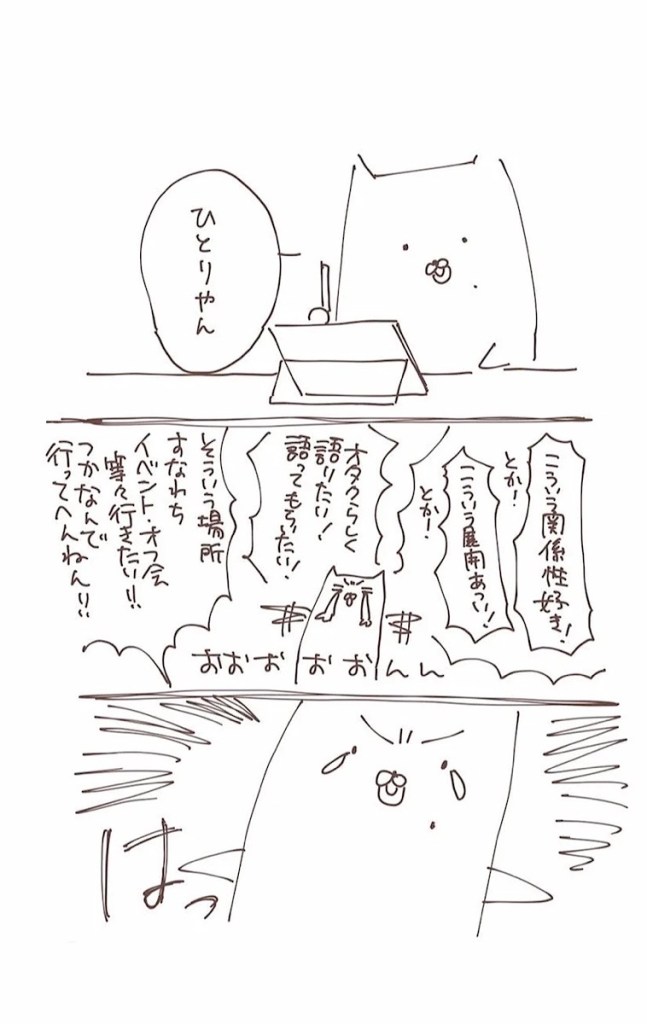 ひとりやん
こういう関係性
好き!
とか!
こういう展開あつい!
とか!
オタクらしく
語りたい!
語ってもらいたい!
そういう場所
すなわち
イベント・オフ会
等々行きたい!!
つかなんで
行ってへんねん!!
おおおおおんん
はっ